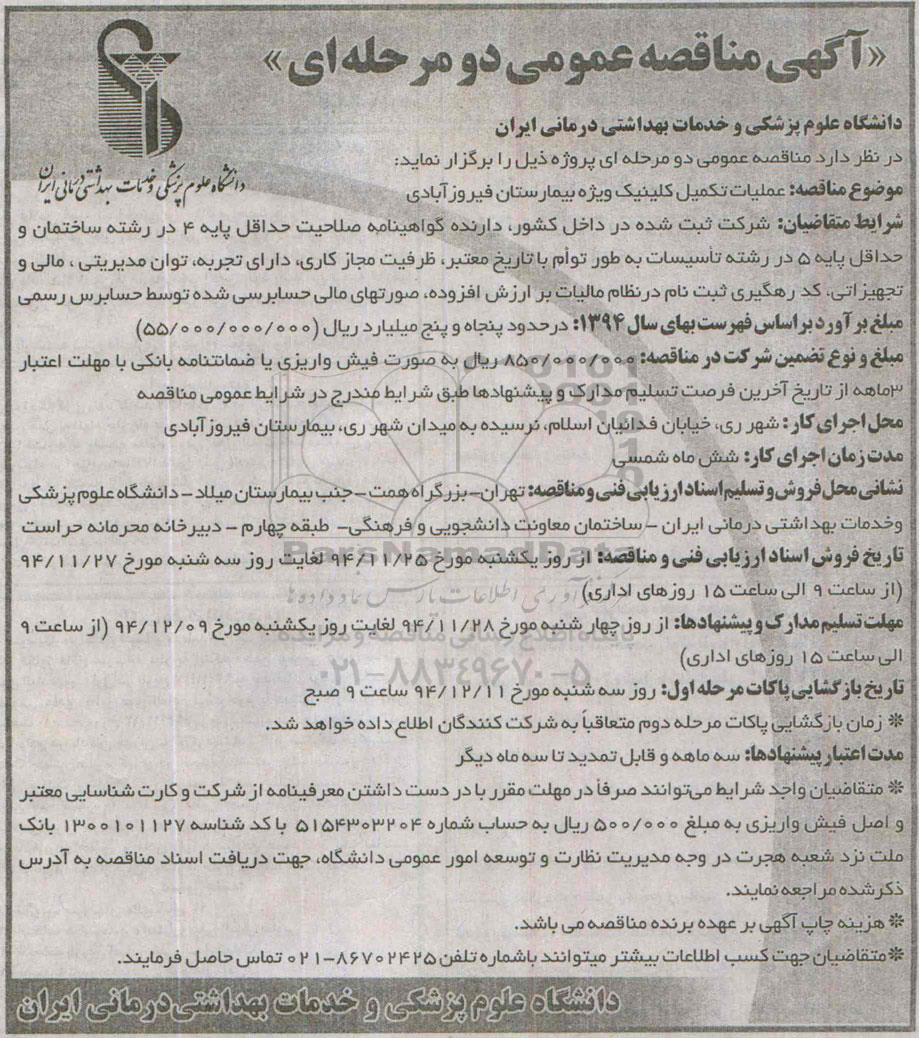 «آگهی مناقصه عمومی دو مرحله‌ای»
دانشگاه علوم پزشکی و خدمات بهداشتی درمانی ایران
دانشگاه علوم پزشکی و خدمات بهداشتی درمانی ایران
در نظر دارد مناقصه عمومی دو مرحله ای پروژه ذیل را برگزار نماید:
موضوع مناقصه: عملیات تکمیل کلینیک ویژه بیمارستان فیروزآبادی
شرایط متقاضیان: شرکت ثبت شده در داخل کشور، دارنده گواهینامه صلاحیت حداقل پایه ۴ در رشته ساختمان و
حداقل پایه ۵ در رشته تأسیسات به طور توأم با تاریخ معتبر، ظرفیت مجاز کاری، دارای تجربه، توان مدیریتی، مالی و
تجهیزاتی، کد رهگیری ثبت نام درنظام مالیات بر ارزش افزوده، صورتهای مالی حسابرسی شده توسط حسابرس رسمی
مبلغ برآورد براساس فهرست بهای سال ۱۳۹۴: درحدود پنجاه و پنج میلیارد ریال (۵۵/۰۰۰/۰۰۰/۰۰۰)
مبلغ و نوع تضمین شرکت در مناقصه: ۸۵۰/۰۰۰/۰۰۰ ریال به صورت فیش واریزی یا ضمانتنامه بانکی با مهلت اعتبار
۳ماهه از تاریخ آخرین فرصت تسلیم مدارک و پیشنهادها طبق شرایط مندرج در شرایط عمومی مناقصه
محل اجرای کار: شهر ری، خیابان فدائیان اسلام، نرسیده به میدان شهر ری، بیمارستان فیروزآبادی
مدت زمان اجرای کار: شش ماه شمسی
نشانی محل فروش و تسلیم اسناد ارزیابی فنی و مناقصه: تهران-بزرگراه همت-جنب بیمارستان میلاد-دانشگاه علوم پزشکی
وخدمات بهداشتی درمانی ایران -ساختمان معاونت دانشجویی و فرهنگی- طبقه چهارم - دبیرخانه محرمانه حراست
ParsNamadData
تاریخ فروش اسناد ارزیابی فنی و مناقصه: از روز یکشنبه مورخ ۹۴/۱۱/۲۵ لغایت روز سه شنبه مورخ ۹۴/۱۱/۲۷
(از ساعت ۹ الی ساعت ۱۵ روزهای اداری)
فرآوری اطلاعات پارس نماد داده‌ها
مهلت تسلیم مدارک و پیشنهادها: از روز چهار شنبه مورخ ۹۴/۱۱/۲۸ لغایت روز یکشنبه مورخ ۹۴/۱۲/۰۹ (از ساعت ۹
پایگاه اطلاع رسانی مناقصه و مزایده
الی ساعت ۱۵ روزهای اداری)
۰۲۱-۸۸۳۴۹۶۷۰-۵
تاریخ بازگشایی پاکات مرحله اول: روز سه شنبه مورخ ۹۴/۱۲/۱۱ ساعت ۹ صبح
* زمان بازگشایی پاکات مرحله دوم متعاقباً به شرکت کنندگان اطلاع داده خواهد شد.
مدت اعتبار پیشنهادها: سه ماهه و قابل تمدید تا سه ماه دیگر
* متقاضیان واجد شرایط می‌توانند صرفاً در مهلت مقرر با در دست داشتن معرفینامه از شرکت و کارت شناسایی معتبر
و اصل فیش واریزی به مبلغ ۵۰۰/۰۰۰ ریال به حساب شماره ۵۱۵۴۳۰۳۲۰۴ با کد شناسه ۱۳۰۰۱۰۱۱۲۷ بانک
ملت نزد شعبه هجرت در وجه مدیریت نظارت و توسعه امور عمومی دانشگاه، جهت دریافت اسناد مناقصه به آدرس
ذکرشده مراجعه نمایند.
* هزینه چاپ آگهی بر عهده برنده مناقصه می باشد.
* متقاضیان جهت کسب اطلاعات بیشتر میتوانند باشماره تلفن ۸۶۷۰۲۴۲۵-۰۲۱ تماس حاصل فرمایند.
دانشگاه علوم پزشکی و خدمات بهداشتی درمانی ایران